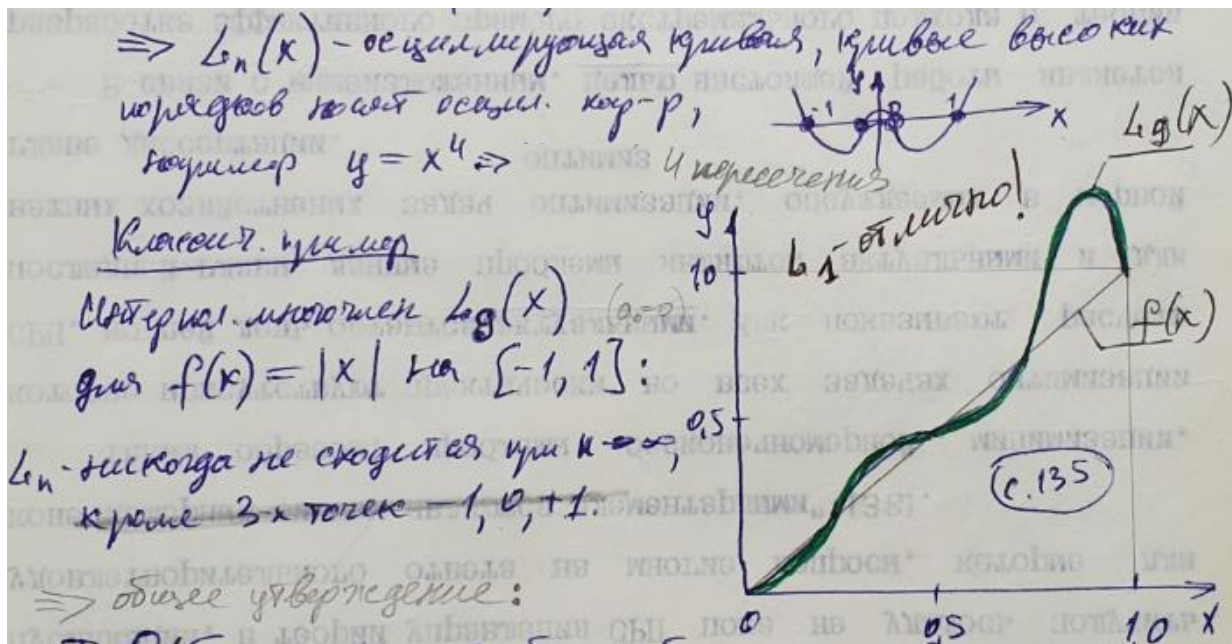 => Ln(x) - осциллирующая кривая, кривые высоких
порядков носят осцил. хар-р,
например y = x⁴ =>
4 пересечения
y
-1
1
x
Классич. пример
Интерпол. многочлен L9(x)
для f(x) = |x| на [-1, 1]:
Ln - никогда не сходится при n → ∞,
кроме 3х точек -1, 0, +1.
=> общее утверждение:
y
L1 - отлично!
L9(x)
f(x)
10
0,5
с. 135
0
0,5
1.0
x